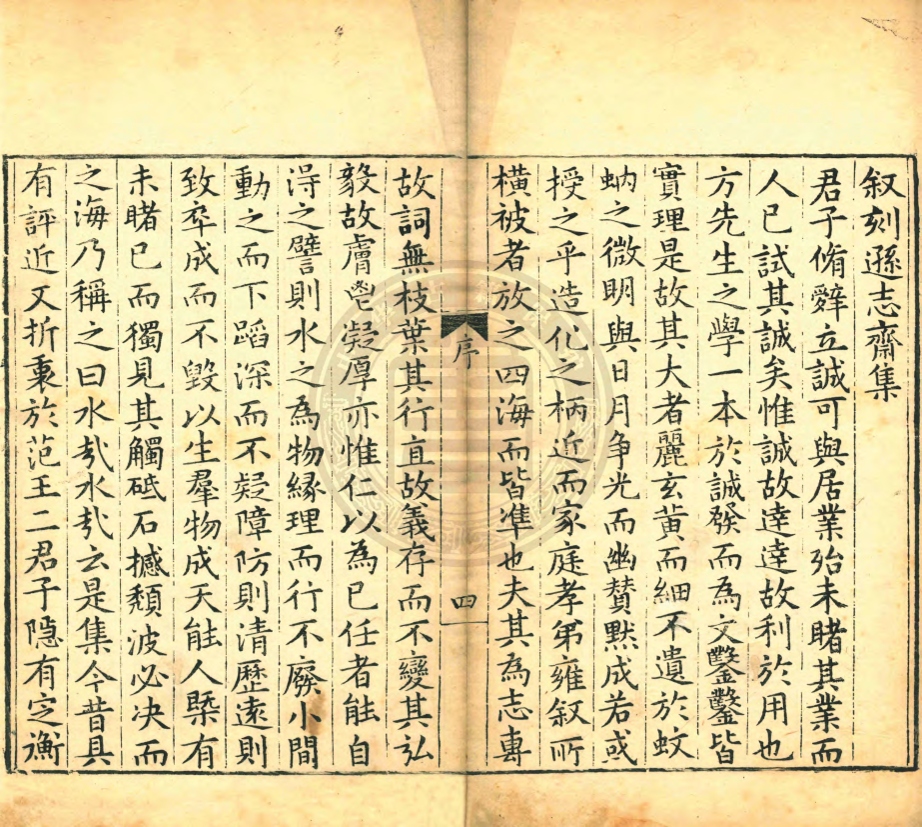 叙刻遜志齋集
君子脩辭立誠可與居業殆未睹其業而
人已試其誠矣惟誠故達達故利於用也
方先生之學一本於誠發而為文鑿鑿皆
實理是故其大者麗玄黄而細不遺於蚊
蚋之微明與日月争光而幽賛默成若或
授之乎造化之柄近而家庭孝弟雍叙所
横被者放之四海而皆準也夫其為志專
序
四
故詞無枝葉其行直故義存而不變其弘
毅故膚鬯凝厚亦惟仁以為已任者能自
淂之譬則水之為物縁理而行不廢小間
動之而下蹈深而不疑障防則清歷逺則
致卒成而不毀以生羣物成天能人槩有
未睹已而獨見其觸砥石撼頽波必决而
之海乃稱之曰水㢤水㢤云是集今昔具
有評近又折衷於范王二君子隠有定衡